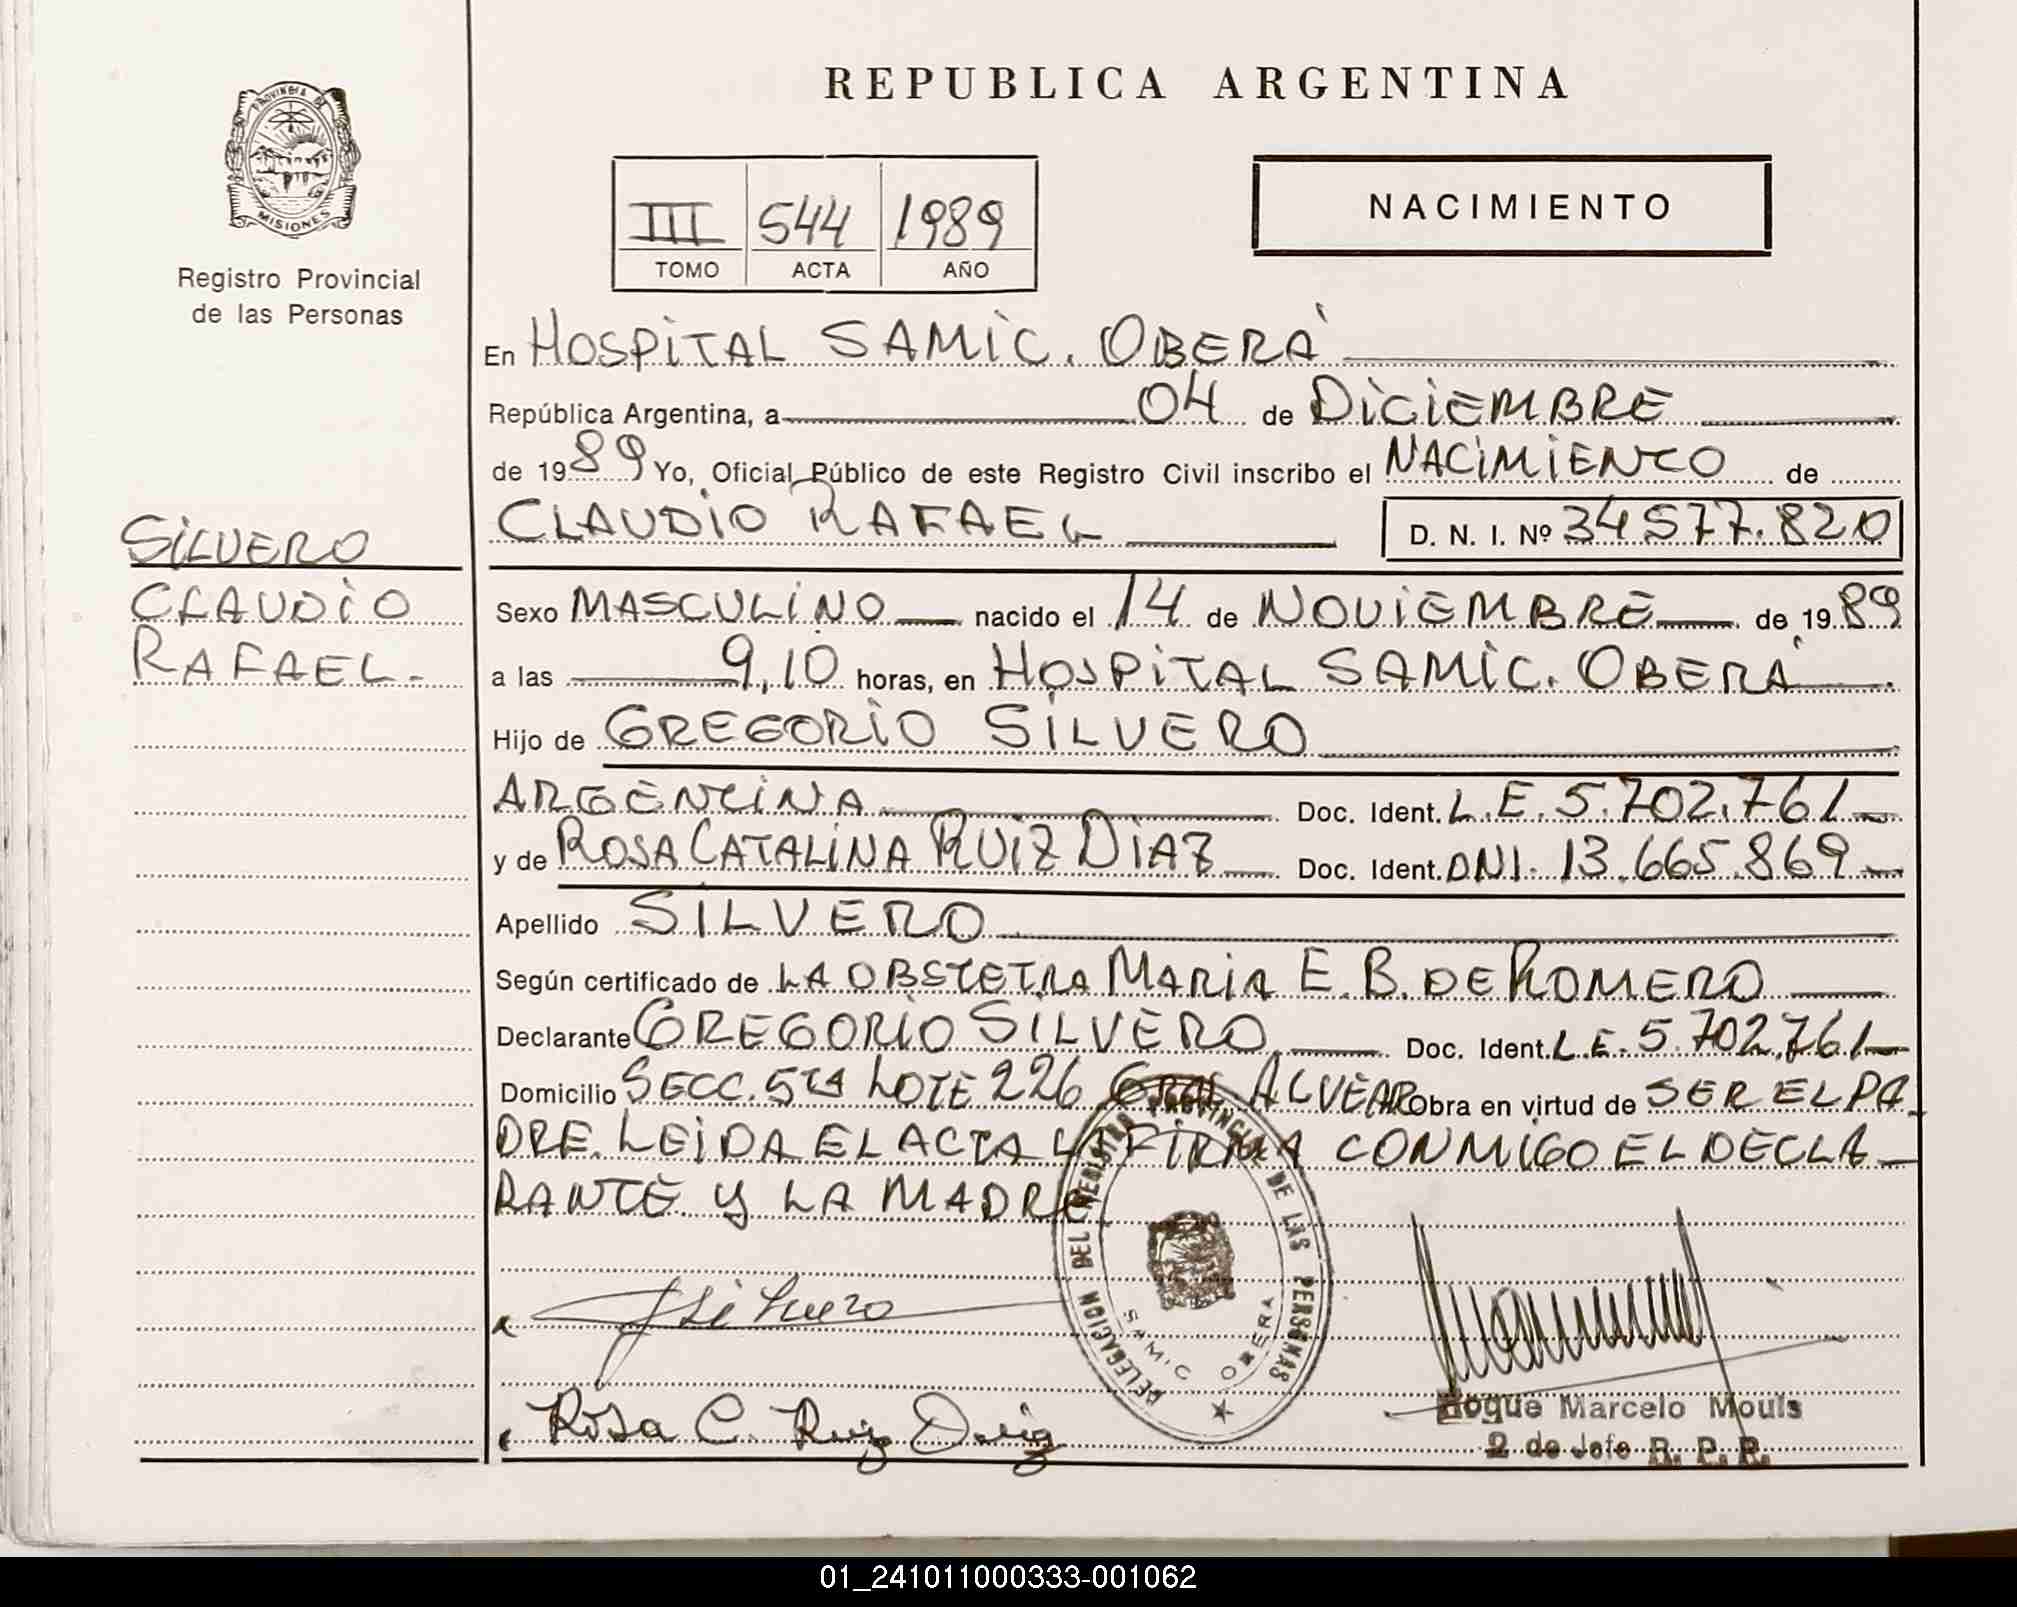 REPUBLICA ARGENTINA
PROVINCIA DE
MISIONES
Registro Provincial
de las Personas
III 544 1989
TOMO ACTA AÑO
NACIMIENTO
En HOSPITAL SAMIC. OBERÁ
República Argentina, a 04 de DICIEMBRE
de 1989 Yo, Oficial Público de este Registro Civil inscribo el NACIMIENTO de
CLAUDIO RAFAEL D. N. I. Nº 34577.820
SILVERO
CLAUDIO
RAFAEL.-
Sexo MASCULINO nacido el 14 de NOVIEMBRE de 1989
a las 9,10 horas, en HOSPITAL SAMIC. OBERÁ
Hijo de GREGORIO SILVERO
ARGENTINA Doc. Ident. L.E. 5.702.761-
y de ROSA CATALINA RUIZ DIAZ Doc. Ident. DNI. 13.665.869-
Apellido SILVERO
Según certificado de LA OBSTETRA MARIA E. B. DE ROMERO
Declarante GREGORIO SILVERO Doc. Ident. L.E. 5.702.761-
Domicilio SECC. 5TA LOTE 226 GRAL ALVEAR Obra en virtud de SER EL PA-
DRE. LEIDA EL ACTA LA FIRMA CONMIGO EL DECLA-
RANTE Y LA MADRE
DELEGACION DEL REGISTRO PROVINCIAL DE LAS PERSONAS
SAMIC OBERA
Silvero
Rosa C. Ruiz Diaz
Roque Marcelo Mouls
2 do Jefe R. P. P.
01_241011000333-001062